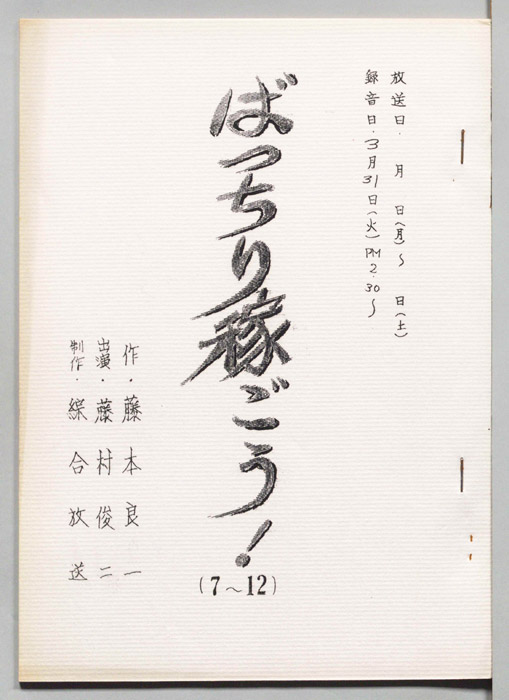 放送日・　月　日(月)〜　日(土)
録音日・3月31日(火)PM2.30〜
ばっちり稼ごう!
(7〜12)
作・藤本良一
出演・藤村俊二
制作・綜合放送